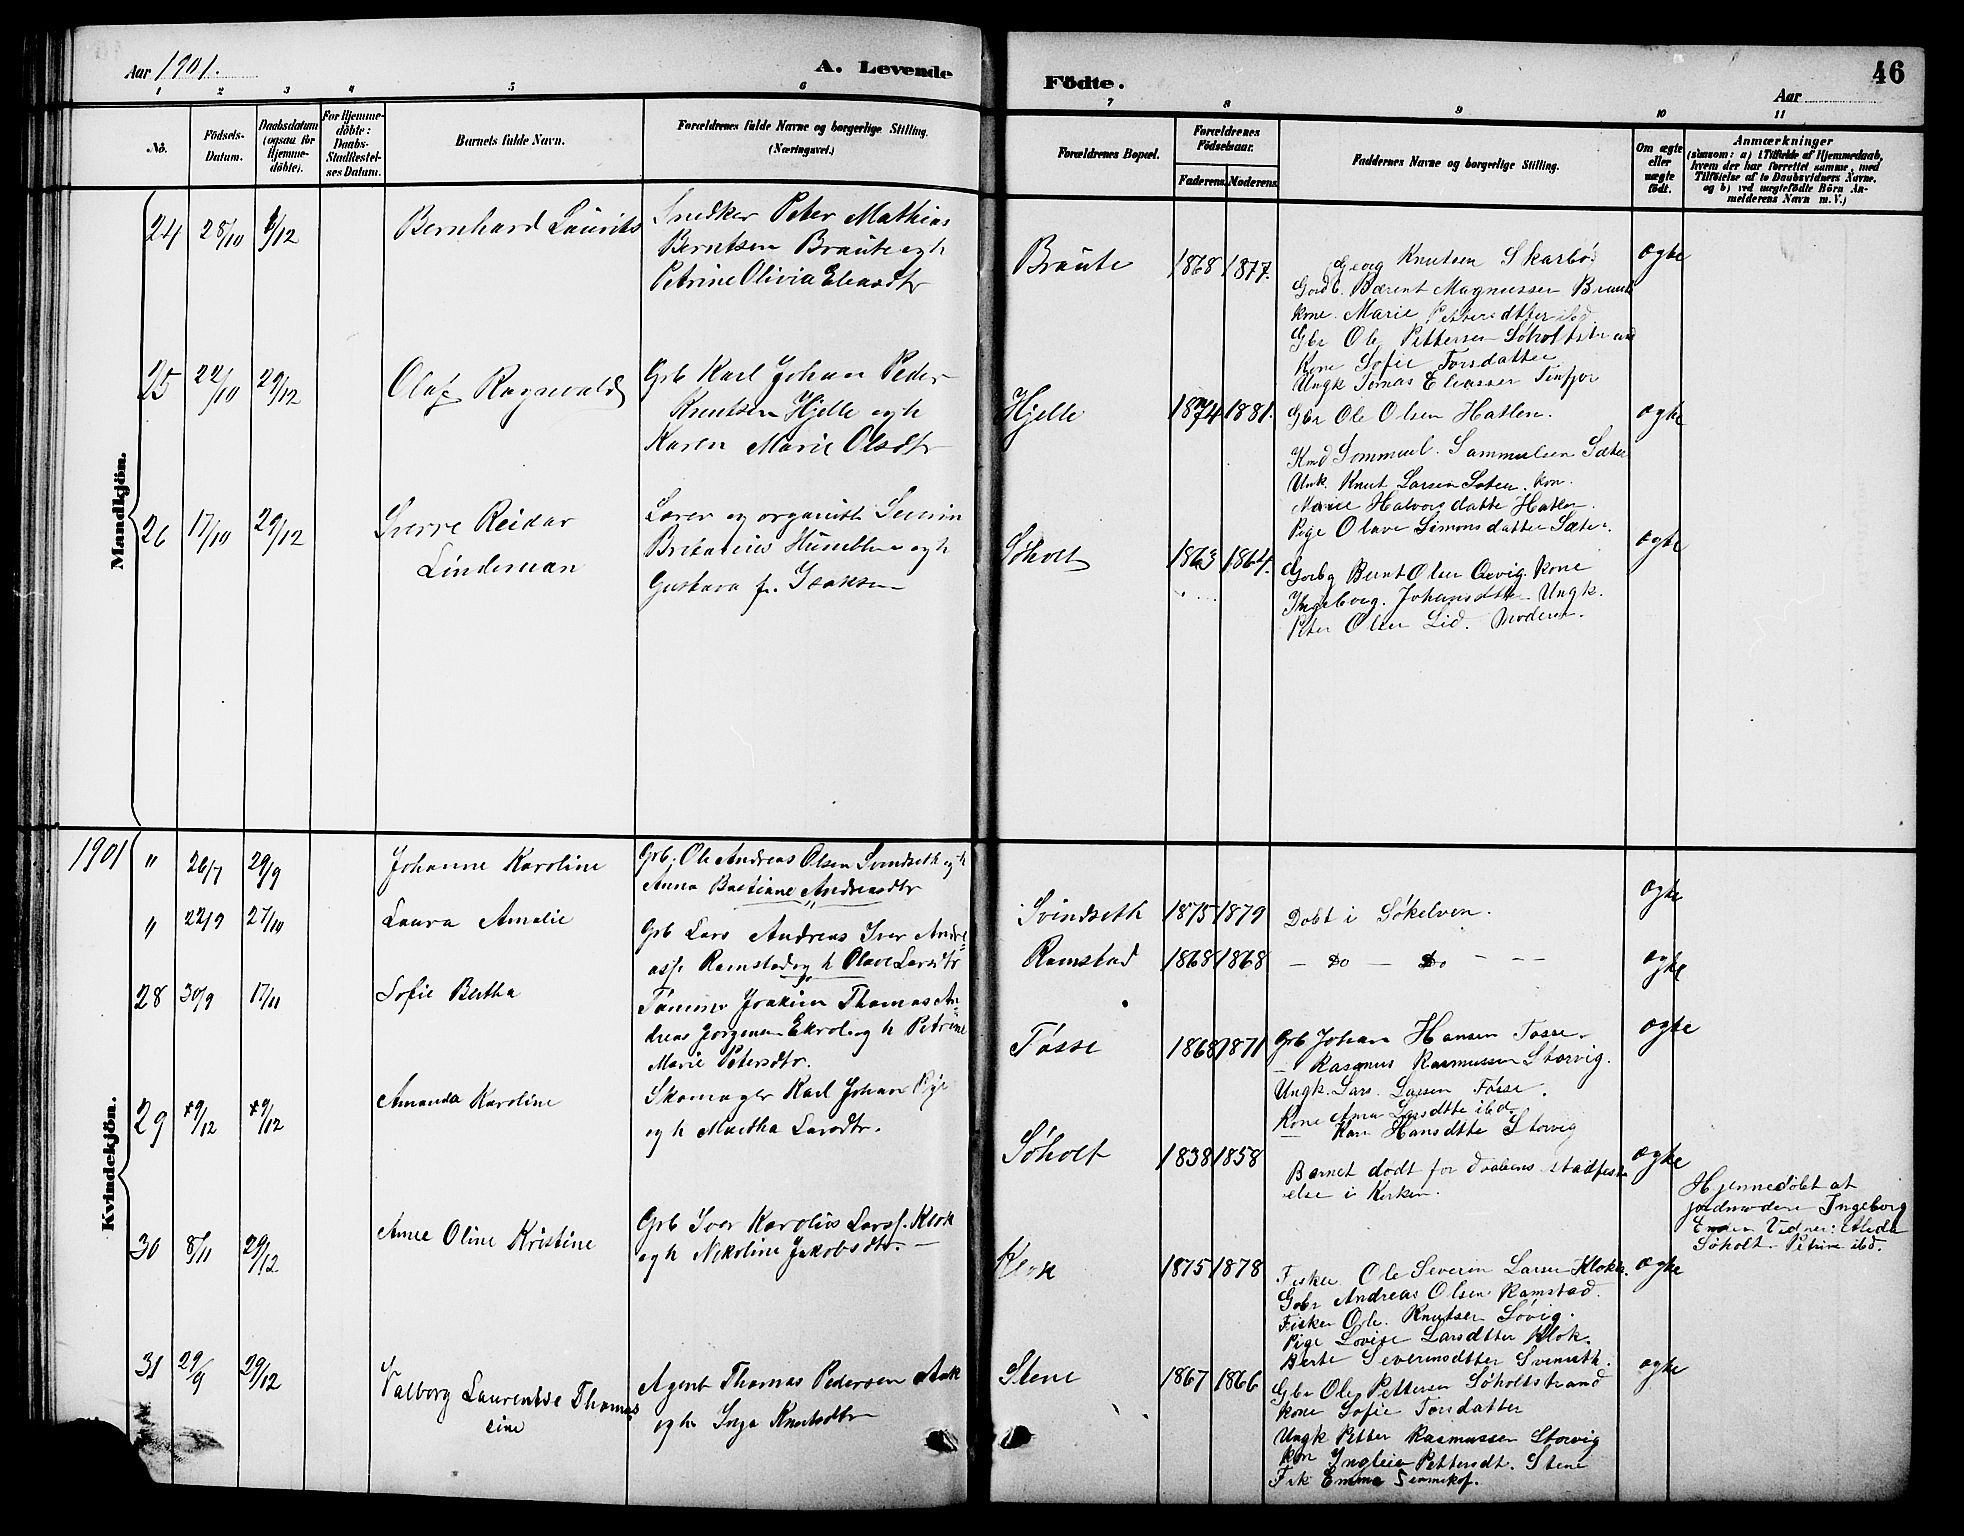 Aar 1901.
A. Levende
Födte.
46
Aar
1 2 3 4 5 6 7 8 9 10 11
No.
Födsels-
Datum.
Daabsdatum
(ogsaa for
Hjemme-
døbte).
For Hjemme-
døbte:
Daabs-
Stadfæstel-
ses Datum.
Barnets fulde Navn.
Forældrenes fulde Navne og borgerlige Stilling.
(Næringsvei.)
Forældrenes Bopæl.
Forældrenes
Födselsaar.
Faderens.
Moderens.
Faddernes Navne og borgerlige Stilling.
Om ægte
eller
uægte
födt.
Anmærkninger
(saasom: a) i Tilfælde af Hjemmedaab,
hvem der har forrettet samme, med
Tilföielse af to Daabsvidners Navne,
og b) ved uægtefödte Börn An-
melderens Navn m. V.)
Mandkjön.
24 28/10 /12
Bernhard Laurits
Snedker Peter Mathias
Berntsen Braute og h
Petrine Olivia Eliasdtr
Braute
1868 1877.
Georg Knutsen Skarbø
Gordb. Bærent Magnussen Braute
kone Marie Pettersdtter ibd.
Gbr Ole Pettersen Søholtstrand
Kone Sofie Torsdatter
Ungk Tomas Eliassen Tenfjor
ogte
25 22/10 29/12
Olaf Ragnvald
Grb Karl Johan Peder
Knutsen Hjelle og h
Karen Marie Olsdtr
Hjelle
1874 1881.
Gbr Ole Olsen Hatlen.
Sammulsen Sæter
Unk. Knut Larsen Sæter. kon.
Marie Halvorsdatte Hatlen.
Pige Olave Simonsdatter Sæter.
ogte
26 17/10 29/12
Sverre Reidar
Lindeman
Lærer og organist
og h
Gustava f. Isaksen
Søholt
1863 1864.
Gorbg Bernt Olsen kone
Ingeborg. Johansdtte. Ungk.
Peter Olsen Lid. Moderen.
ogte
1901
Kvindekjön.
" 26/7 29/9
Johanne Karoline
Grb. Ole Andreas Olsen Svindseth og h
Anna Bastiane Andreasdtr
Svindseth
1875 1879
Dobt i Søkelven.
ogte
" 22/9 27/10
Laura Amalie
Grb Lars Andreas Iver Andre
asf. Ramstad og h Olave Larsdtr
Ramstad
1868 1868
— Do — Do — —
ogte
28 30/9 17/11
Sofie Bertha
Tømmer Joakim Thomas An
dreas Jørgensen Ekrol og h Petrine
Marie Petersdtr
Tøsse
1868 1871
Grb Johan Hansen Tøsse
— Rasmus Rasmussen Storvig.
Ungk. Lars. Larsen Tøsse.
Kone Ana Larsdtte ibd
— Kari Hansdtte Storvig
ogte
29 29/12 29/12
Amanda Karoline
Skomager Karl Johan
og h Martha Larsdtr.
Søholt
1838 1858
Barnet dødt for daabens stadfest
else i Kirken.
ogte
Hjemmedøbt at
jordmoder Ingeborg
Vidner:
Søholt. Petrine ibd.
30 8/11 29/12
Anne Oline Kristine
Grb Iver Karolius Larsf. Klok
og h Nikoline Jakobsdtr. —
Klok
1875 1878
Fisker Ole Severin Larsen Klokk.
Gobr Andreas Olsen Ramstad.
Fisker Ole. Knutsen Søvig.
Pige Lovise Larsdtter Klok.
Berte Severinsdtter
ogte
31 29/9 29/12
Valborg Laurentse Thomas
sine
Agent Thomas Pedersen
og h Inga Knutsdtr
Stene
1867 1866
Gbr Ole Pettersen Søholtstrand
kone Sofie Torsdatter
Ungk Petter Rasmussen Storvig
kon Pettersdt. Stene
Frk Emma
ogte